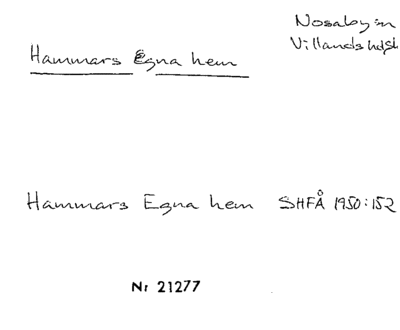 Nosaby sn
Villands hd, Sk
Hammars Egna hem
Hammars Egna hem SHFÅ 1950:152
Nr 21277